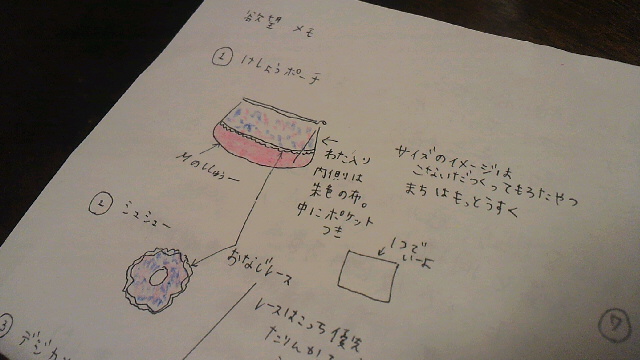 欲望 メモ
① けしょうポーチ
わた入り
内側りは
朱色の布。
中にポケット
つき
サイズのイメージは
こないだつくってもろたやつ
まちはもっとうすく
② シュシュー
おなじレース
1つで
いーよ
レースはこっち優先
たりんかっ
③ デジカ
⑦